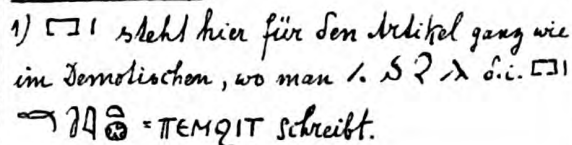 1) 𓉐𓏤 steht hier für den Artikel ganz wie
im Demotischen, wo man d.i. 𓉐𓏤
= ΠΕΜϨΙΤ schreibt.